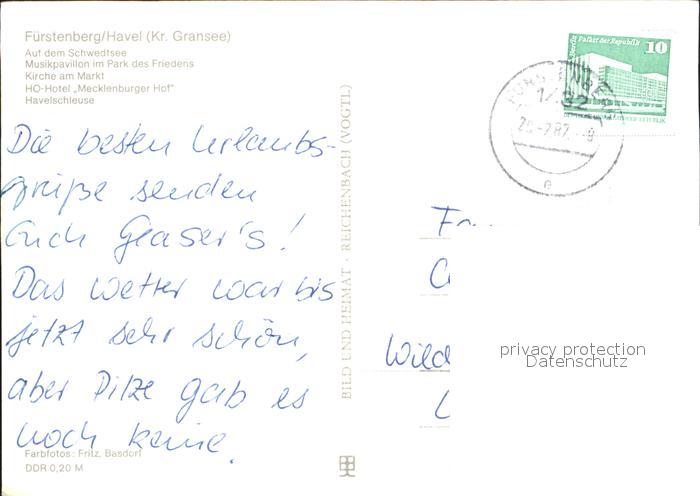 Fürstenberg/Havel (Kr. Gransee)
Auf dem Schwedtsee
Musikpavillon im Park des Friedens
Kirche am Markt
HO-Hotel „Mecklenburger Hof"
Havelschleuse
Die besten Urlaubs-
grüße senden
Euch Glaser's!
Das Wetter war bis
jetzt sehr schön,
aber Pilze gab es
noch keine.
Farbfotos: Fritz, Basdorf
DDR 0,20 M
BILD UND HEIMAT · REICHENBACH (VOGTL)
Berlin, Palast der Republik
10
1432
e
Fr.
Wild
privacy protection
Datenschutz